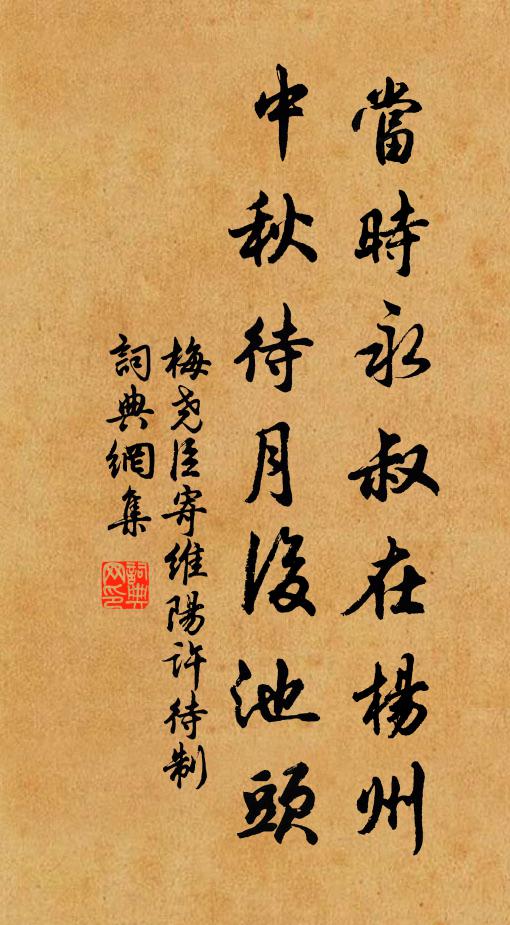 當時永叔在楊州
中秋待月後池頭
梅尧臣寄維陽許待制
詞典網集
詞典
网印